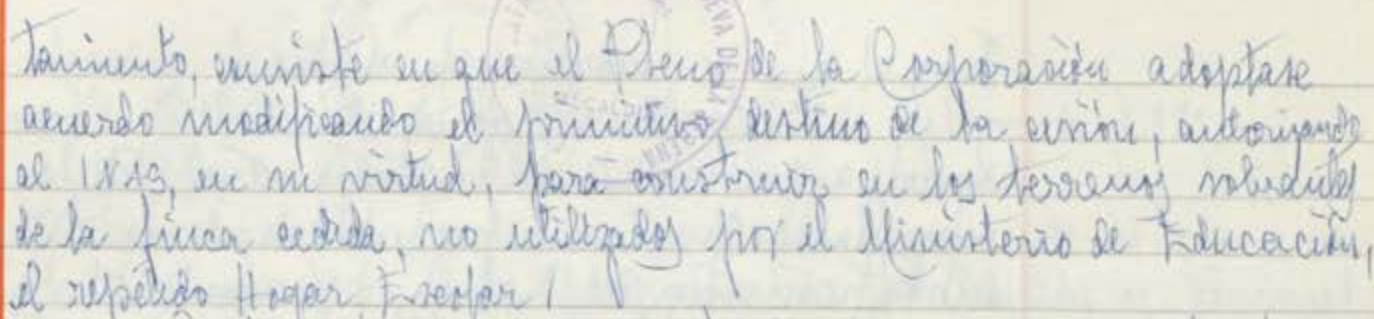 tamiento, consiste en que el Pleno de la Corporación adoptase
acuerdo modificando el primitivo destino de la cesión, autorizando
al INAS, en su virtud, para construir en los terrenos sobrantes
de la finca cedida, no utilizados por el Ministerio de Educación,
el repetido Hogar Escolar.